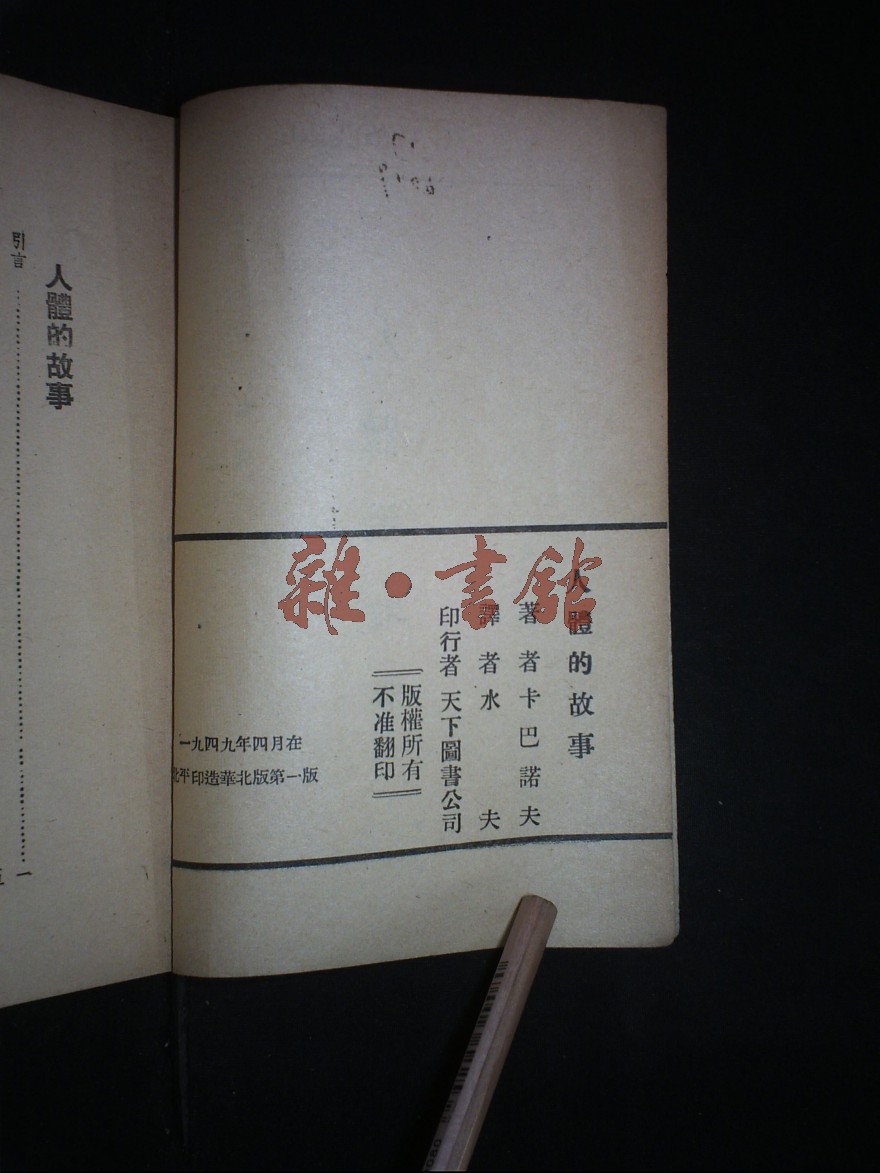 人體的故事
著者卡巴諾夫
譯者水夫
印行者天下圖書公司
版權所有
不准翻印
一九四九年四月在
北平印造華北版第一版
人體的故事
引言……一
雜·書館